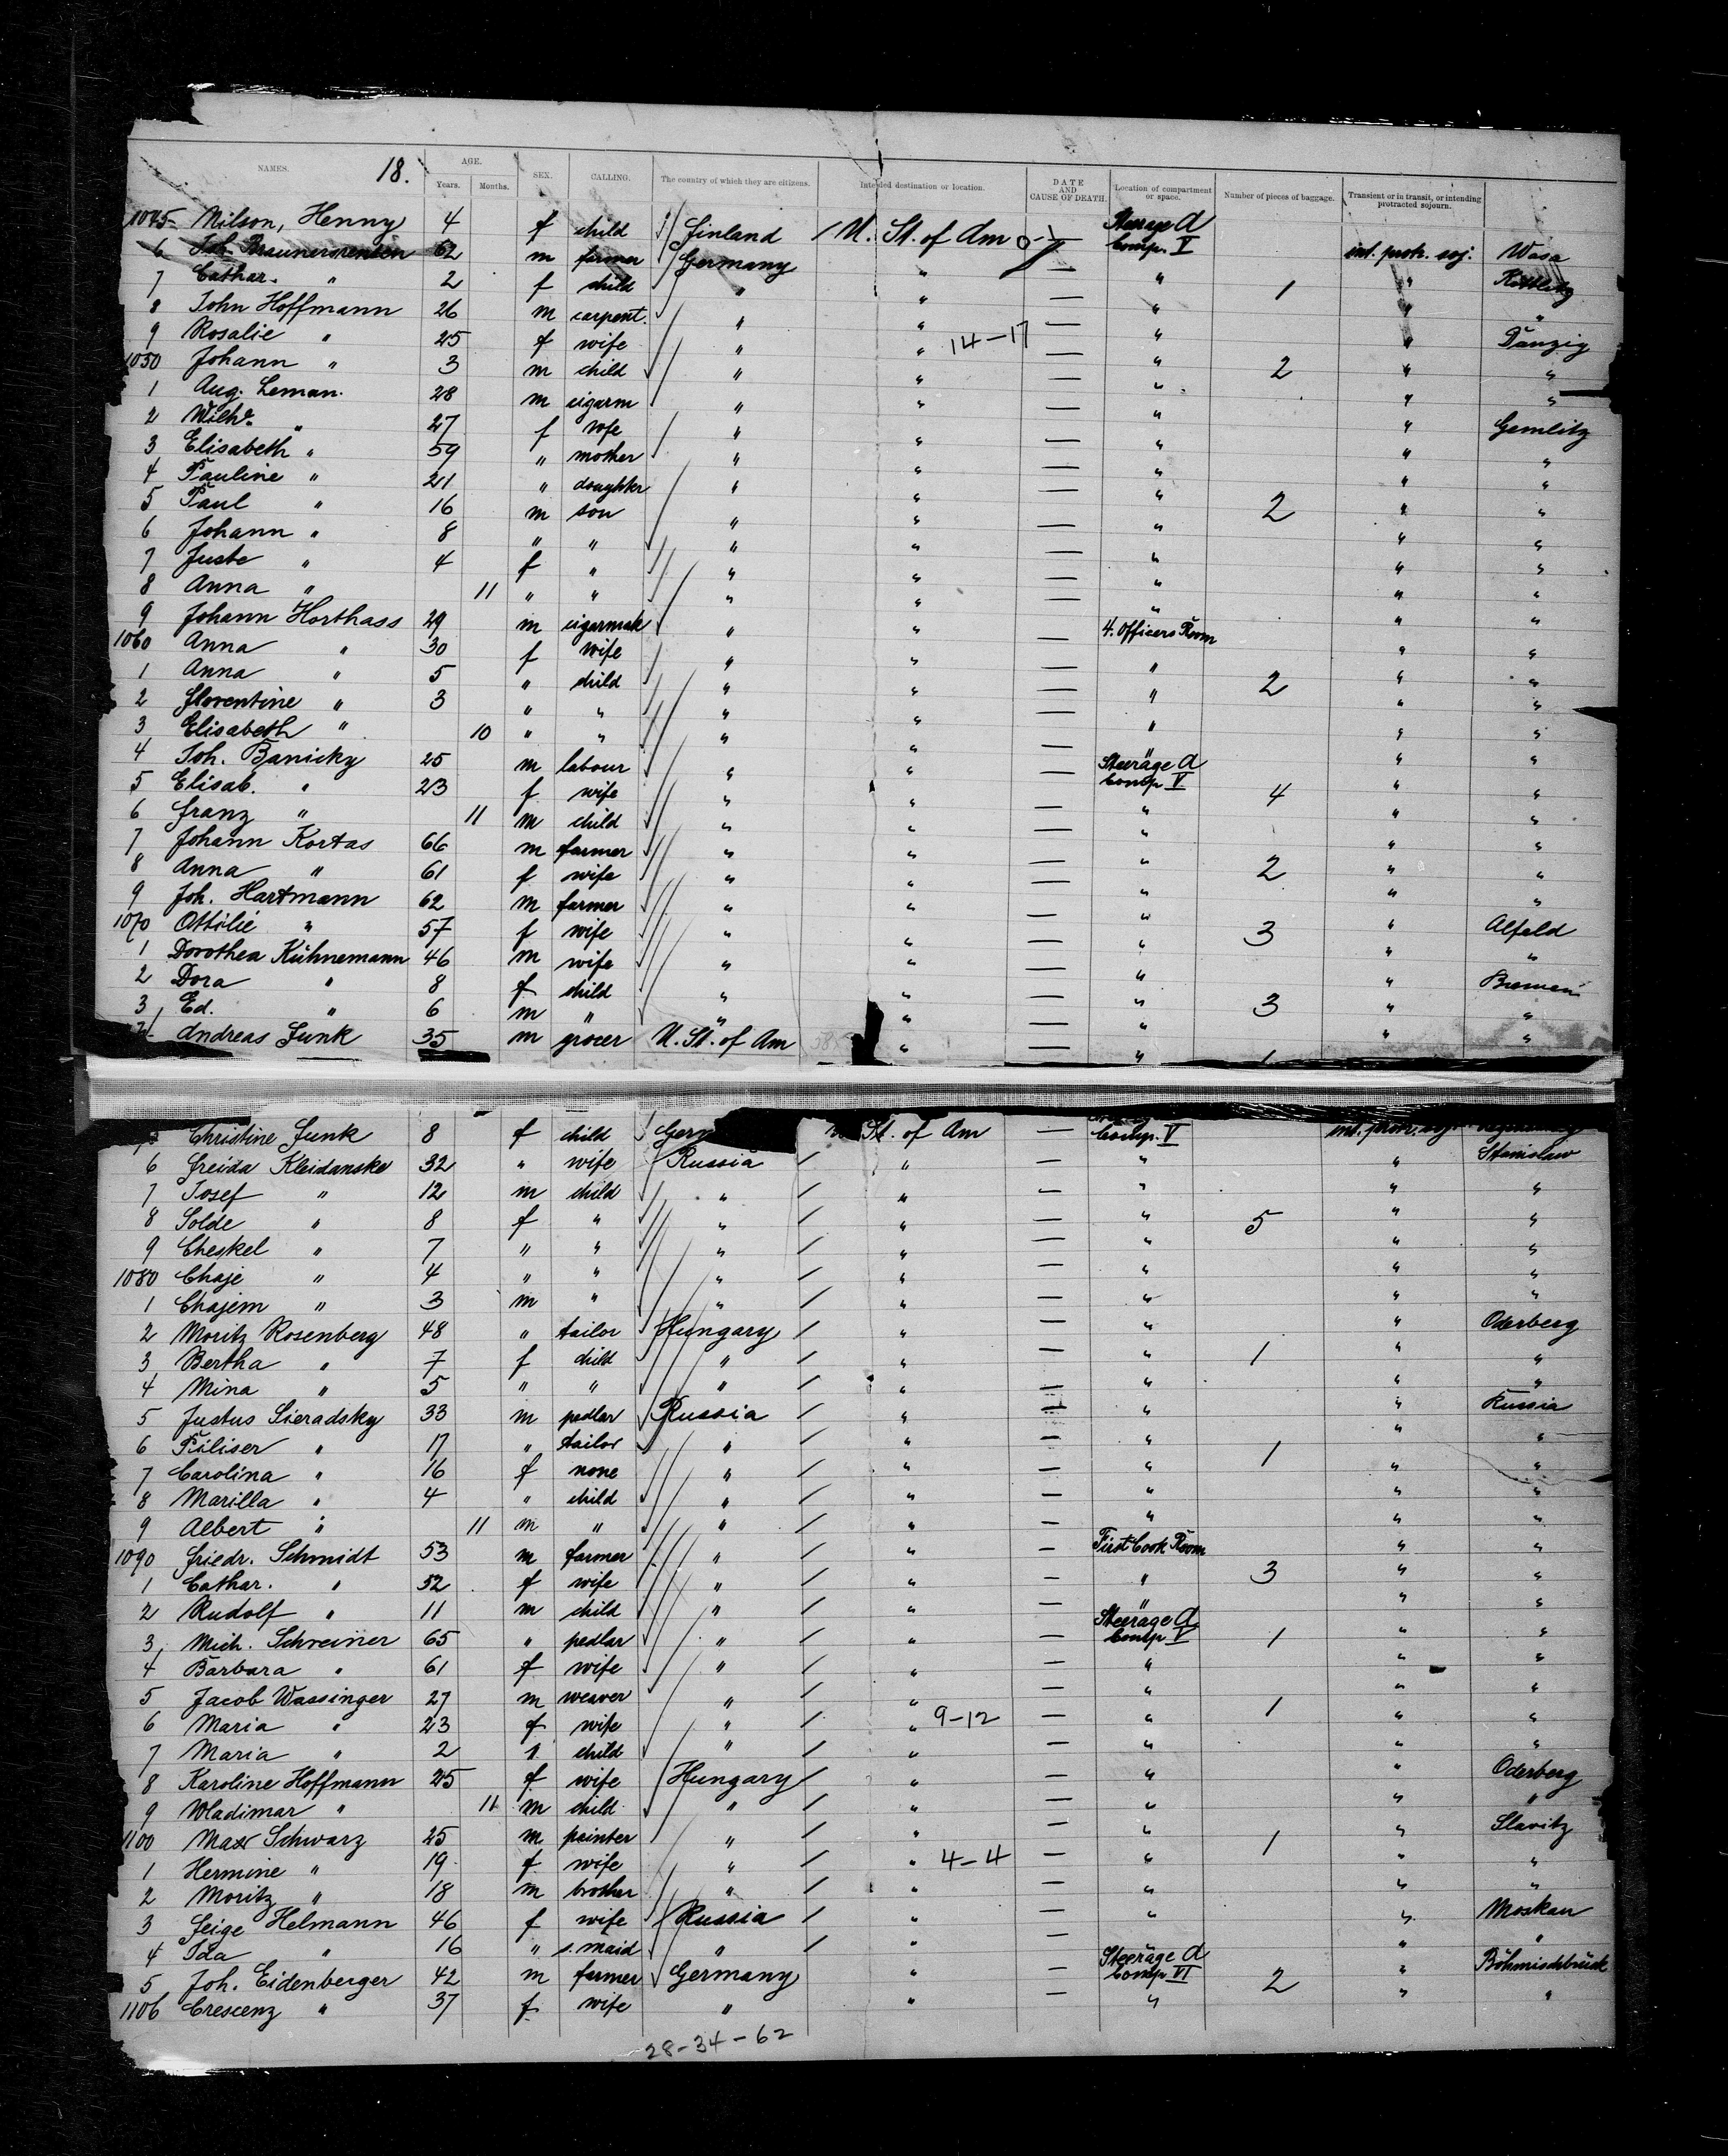 18.
NAMES. AGE. Years. Months. SEX. CALLING. The country of which they are citizens. Intended destination or location. DATE AND CAUSE OF DEATH. Location of compartment or space. Number of pieces of baggage. Transient or in transit, or intending protracted sojourn.
1045 Nilson, Henny 4 f child Finland U. St. of Am — Steerage A Comp. V int. protr. soj. Wasa
6 Joh. 62 m farmer Germany " — " 1 "
7 Cathar. " 2 f child " " — " " "
8 John Hoffmann 26 m carpent. " " — " " Danzig
9 Rosalie " 25 f wife " " 14-17 — " 2 " "
1050 Johann " 3 m child " " — " " "
1 Aug. Leman. 28 m cigarm " " — " " Gemlitz
2 Wilhe. " 27 f wfe " " — " " "
3 Elisabeth " 59 " mother " " — " " "
4 Pauline " 21 " daughter " " — " 2 " "
5 Paul " 16 m son " " — " " "
6 Johann " 8 " " " " — " " "
7 Juste " 4 f " " " — " " "
8 Anna " 11 " " " " — " " "
9 Johann Horthass 29 m cigarmak " " — 4. Officers Room " "
1060 Anna " 30 f wife " " — " " "
1 Anna " 5 " child " " — " 2 " "
2 Florentine " 3 " " " " — " " "
3 Elisabeth " 10 " " " " — " " "
4 Joh. Banicky 25 m labour " " — Steerage A Comp V " "
5 Elisab. " 23 f wife " " — " 4 " "
6 Franz " 11 m child " " — " " "
7 Johann Kortas 66 m farmer " " — " " "
8 Anna " 61 f wife " " — " 2 " "
9 Joh. Hartmann 62 m farmer " " — " " Alfeld
1070 Ottilie " 57 f wife " " — " 3 " "
1 Dorothea Kühnemann 46 m wife " " — " " Bremen
2 Dora " 8 f child " " — " 3 " "
3 Ed. " 6 m " " " — " " "
4 Andreas Funk 35 m grocer U. St. of Am " — " 1
Christine Funk 8 f child Ger St. of Am — Comp. V
6 Freida Kleidanske 32 " wife Russia " — " " Stanislaw
7 Josef " 12 m child " " — " " "
8 Solde " 8 f " " " — " 5 " "
9 Cheskel " 7 " " " " — " " "
1080 Chaje " 4 " " " " — " " "
1 Chajem " 3 m " " " — " " "
2 Moritz Rosenberg 48 " tailor Hungary " — " " Oderberg
3 Bertha " 7 f child " " — " 1 " "
4 Mina " 5 " " " " — " " "
5 Justus Sieradsky 33 m pedlar Russia " — " " Russia
6 Piliser " 17 " tailor " " — " 1 " "
7 Carolina " 16 f none " " — " " "
8 Marilla " 4 " child " " — " " "
9 Albert " 11 m " " " — " " "
1090 Friedr. Schmidt 53 m farmer " " — First Cook Room " "
1 Cathar. " 52 f wife " " — " 3 " "
2 Rudolf " 11 m child " " — " " "
3 Mich. Schreiner 65 " pedlar " " — Steerage A Comp V 1 " "
4 Barbara " 61 f wife " " — " " "
5 Jacob Wassinger 27 m weaver " " — " 1 " "
6 Maria " 23 f wife " " 9-12 — " " "
7 Maria " 2 " child " " — " " "
8 Karoline Hoffmann 25 f wife Hungary " — " " Oderberg
9 Wladimar " 11 m child " " — " " "
1100 Max Schwarz 25 m painter " " — " 1 " Slavitz
1 Hermine " 19 f wife " " 4-4 — " " "
2 Moritz " 18 m brother " " — " " "
3 Feige Helmann 46 f wife Russia " — " " Moskau
4 Ida " 16 " s. maid " " — " " "
5 Joh. Eidenberger 42 m farmer Germany " — Steerage A Comp VI 2 " Böhmischbrück
1106 Crescenz " 37 f wife " " — " " "
28-34-62